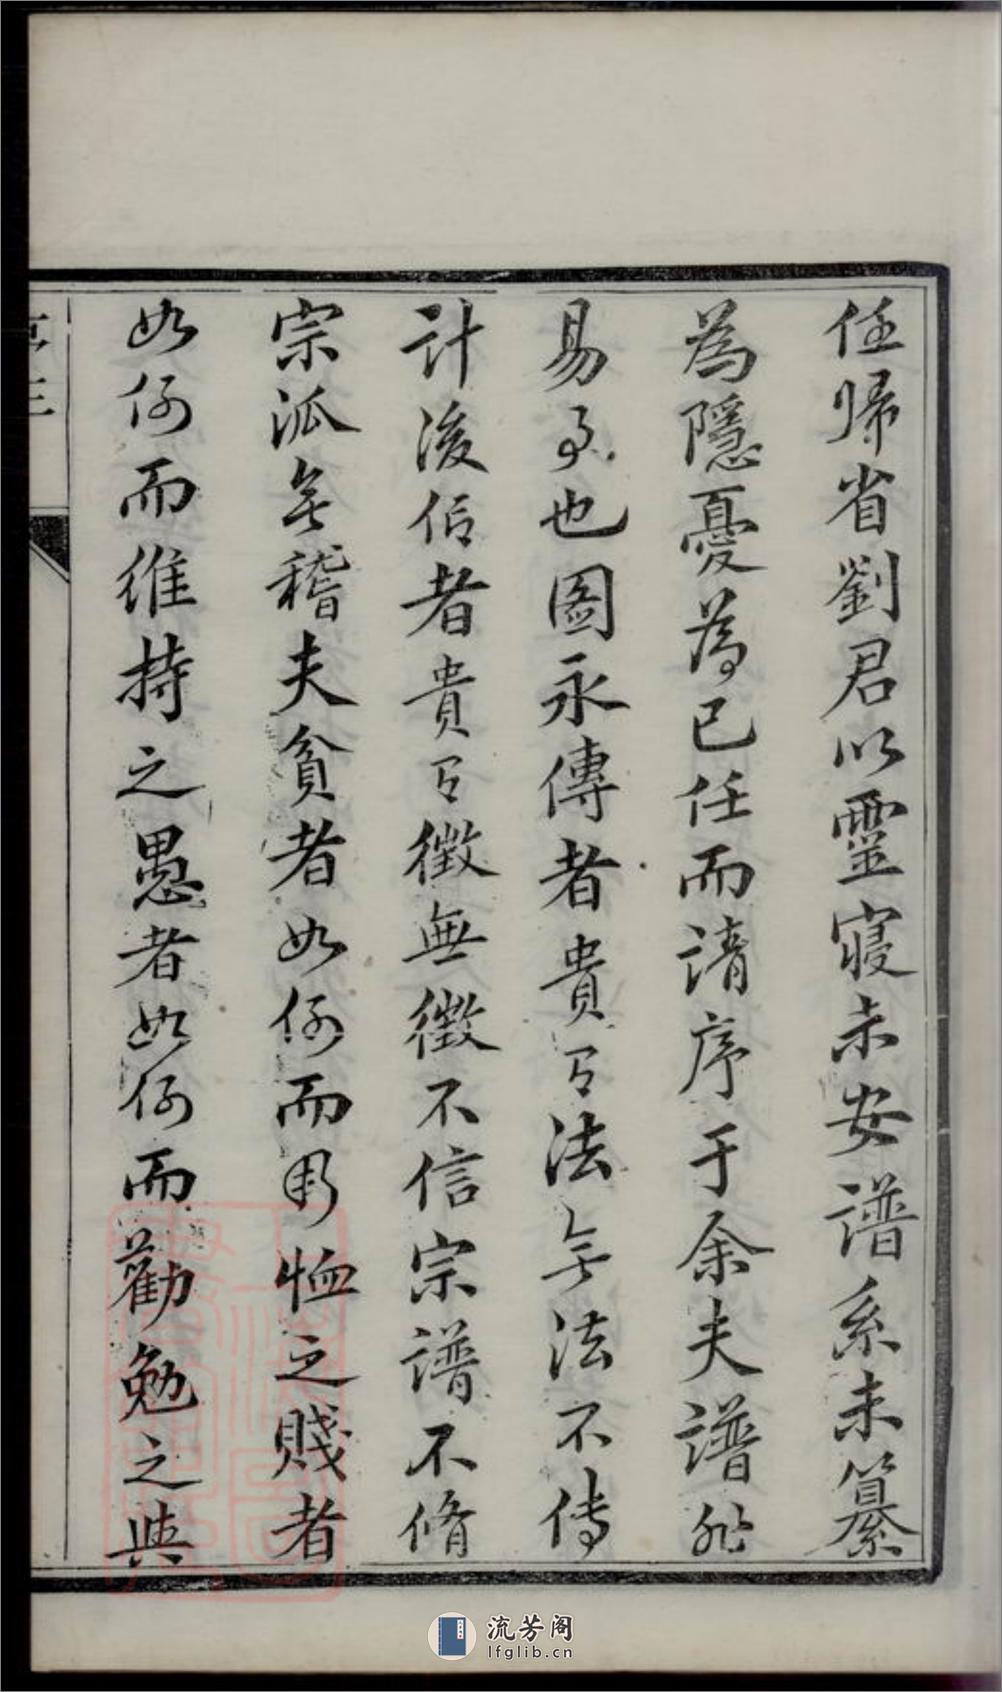 任歸省劉君以靈寢未安譜系未纂
為隱憂為己任而請序于余夫譜非
易事也圖永傳者貴有法無法不傳
計後信者貴有徵無徵不信宗譜不脩
宗派無稽夫貧者如何而賙恤之賤者
如何而維持之愚者如何而勸勉之與
流芳阁
lfglib.cn